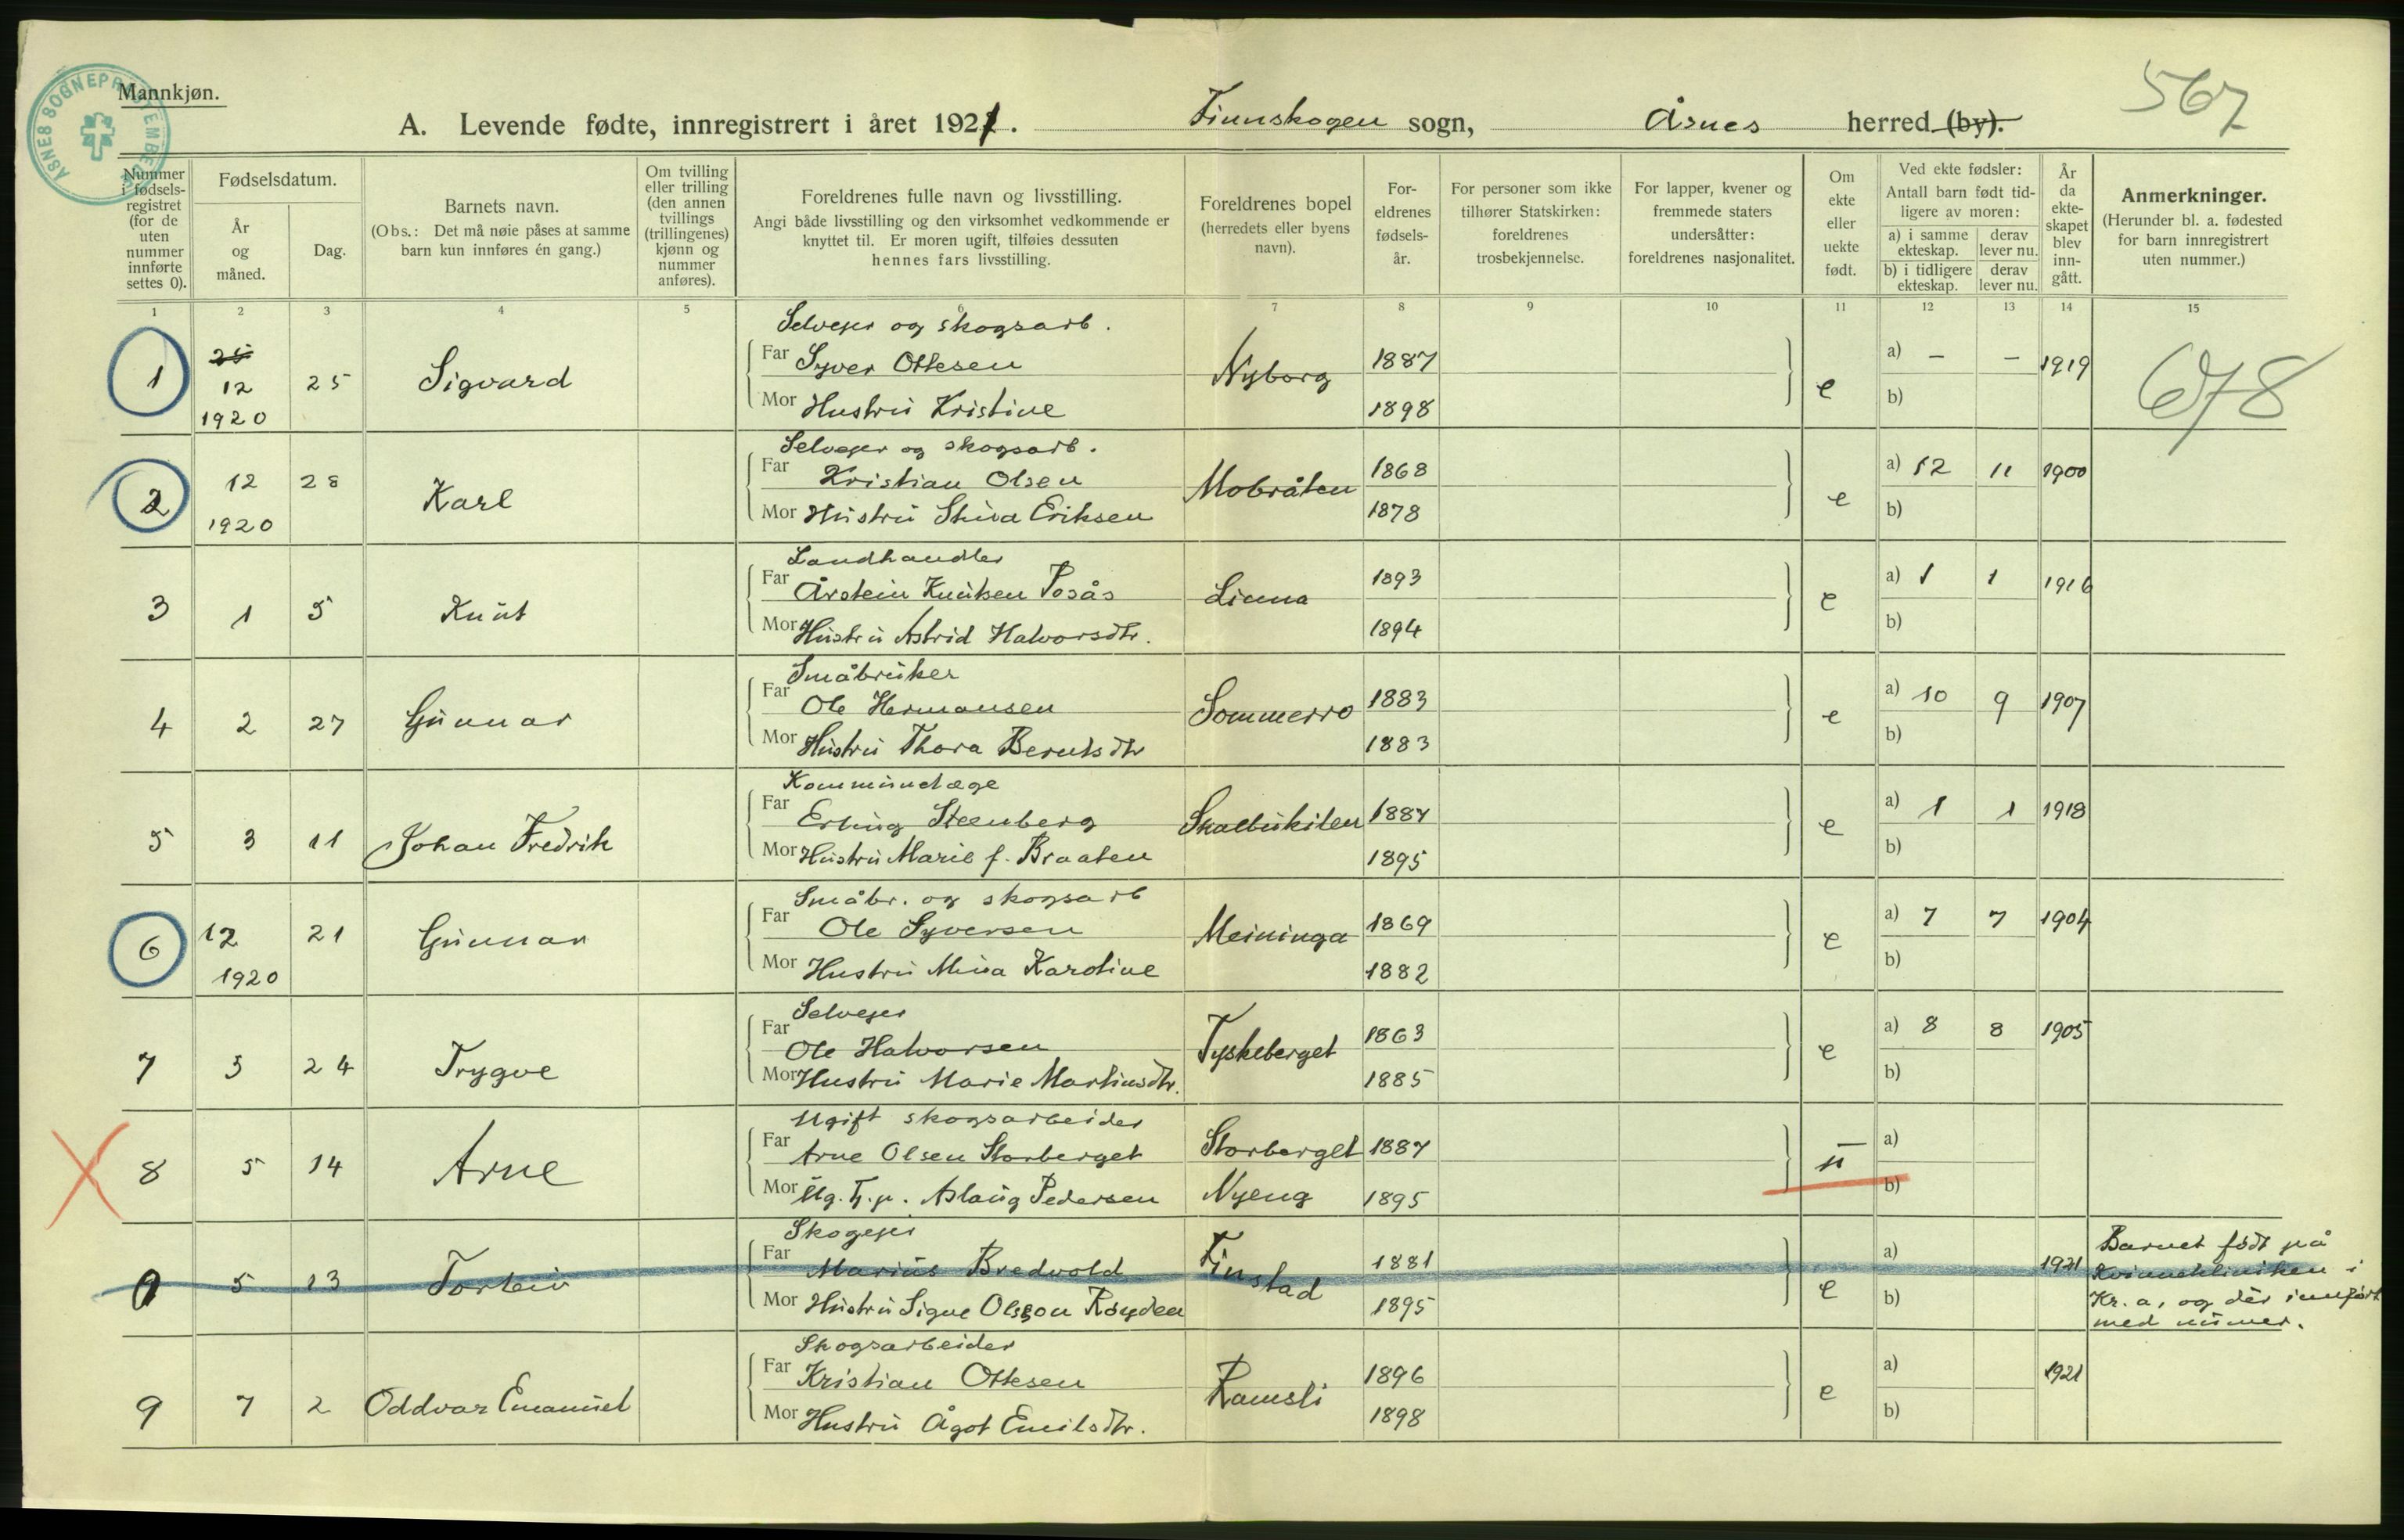 ÅSNES SOGNEPRESTEMBEDE
Mannkjøn.
567
A. Levende fødte, innregistrert i året 1921. Finnskogen sogn, Åsnes herred (by).
Nummer i fødselsregistret (for de uten nummer innførte settes 0).
Fødselsdatum.
År og måned.
Dag.
Barnets navn.
(Obs.: Det må nøie påses at samme barn kun innføres én gang.)
Om tvilling eller trilling (den annen tvillings (trillingenes) kjønn og nummer anføres).
Foreldrenes fulle navn og livsstilling.
Angi både livsstilling og den virksomhet vedkommende er knyttet til. Er moren ugift, tilføies dessuten hennes fars livsstilling.
Foreldrenes bopel (herredets eller byens navn).
Foreldrenes fødselsår.
For personer som ikke tilhører Statskirken: foreldrenes trosbekjennelse.
For lapper, kvener og fremmede staters undersåtter: foreldrenes nasjonalitet.
Om ekte eller uekte født.
Ved ekte fødsler:
Antall barn født tidligere av moren:
a) i samme ekteskap. derav lever nu.
b) i tidligere ekteskap. derav lever nu.
År da ekteskapet blev inngått.
Anmerkninger.
(Herunder bl. a. fødested for barn innregistrert uten nummer.)
1 2 3 4 5 6 7 8 9 10 11 12 13 14 15
Selvejer og skogsarb.
1 25 12 25 Sigvard Far Syver Ottesen Nyborg 1887 e a) – – 1919 678
1920 Mor Hustru Kristine 1898 b)
Selvejer og skogsarb.
2 12 28 Karl Far Kristian Olsen Mobråten 1868 e a) 12 11 1900
1920 Mor Hustru Eriksen 1878 b)
Landhandler
3 1 5 Knut Far Årstein Knutsen Posås Linna 1893 e a) 1 1 1916
Mor Hustru Astrid Halvorsdtr. 1894 b)
Småbruker
4 2 27 Gunnar Far Ole Hermansen Sommerro 1883 e a) 10 9 1907
Mor Hustru Thora Berntsdtr 1883 b)
Kommunelæge
5 3 11 Johan Fredrik Far Erling Steenberg Skalbukilen 1887 e a) 1 1 1918
Mor Hustru Marie f. Braaten 1895 b)
Småbr. og skogsarb
6 12 21 Gunnar Far Ole Syversen Meininga 1869 e a) 7 7 1904
1920 Mor Hustru Mina Karoline 1882 b)
Selvejer
7 3 24 Trygve Far Ole Halvorsen Tyskeberget 1863 e a) 8 8 1905
Mor Hustru Marie Martinsdtr. 1885 b)
Ugift skogsarbeider
8 5 14 Arne Far Arne Olsen Storberget Storberget 1887 u a)
Mor Ug. Tj.p. Aslaug Pedersen Nyeng 1895 b)
Skogejer
0 5 13 Torleiv Far Marius Bredvold Finstad 1881 e a) 1921 Barnet født på
Kvinneklinikken i
Mor Hustru Signe Olsson Røyden 1895 b) Kr.a, og dèr innført
med numer.
Skogsarbeider
9 7 2 Oddvar Emanuel Far Kristian Ottesen Ramsli 1896 e a) 1921
Mor Hustru Ågot Emilsdtr. 1898 b)